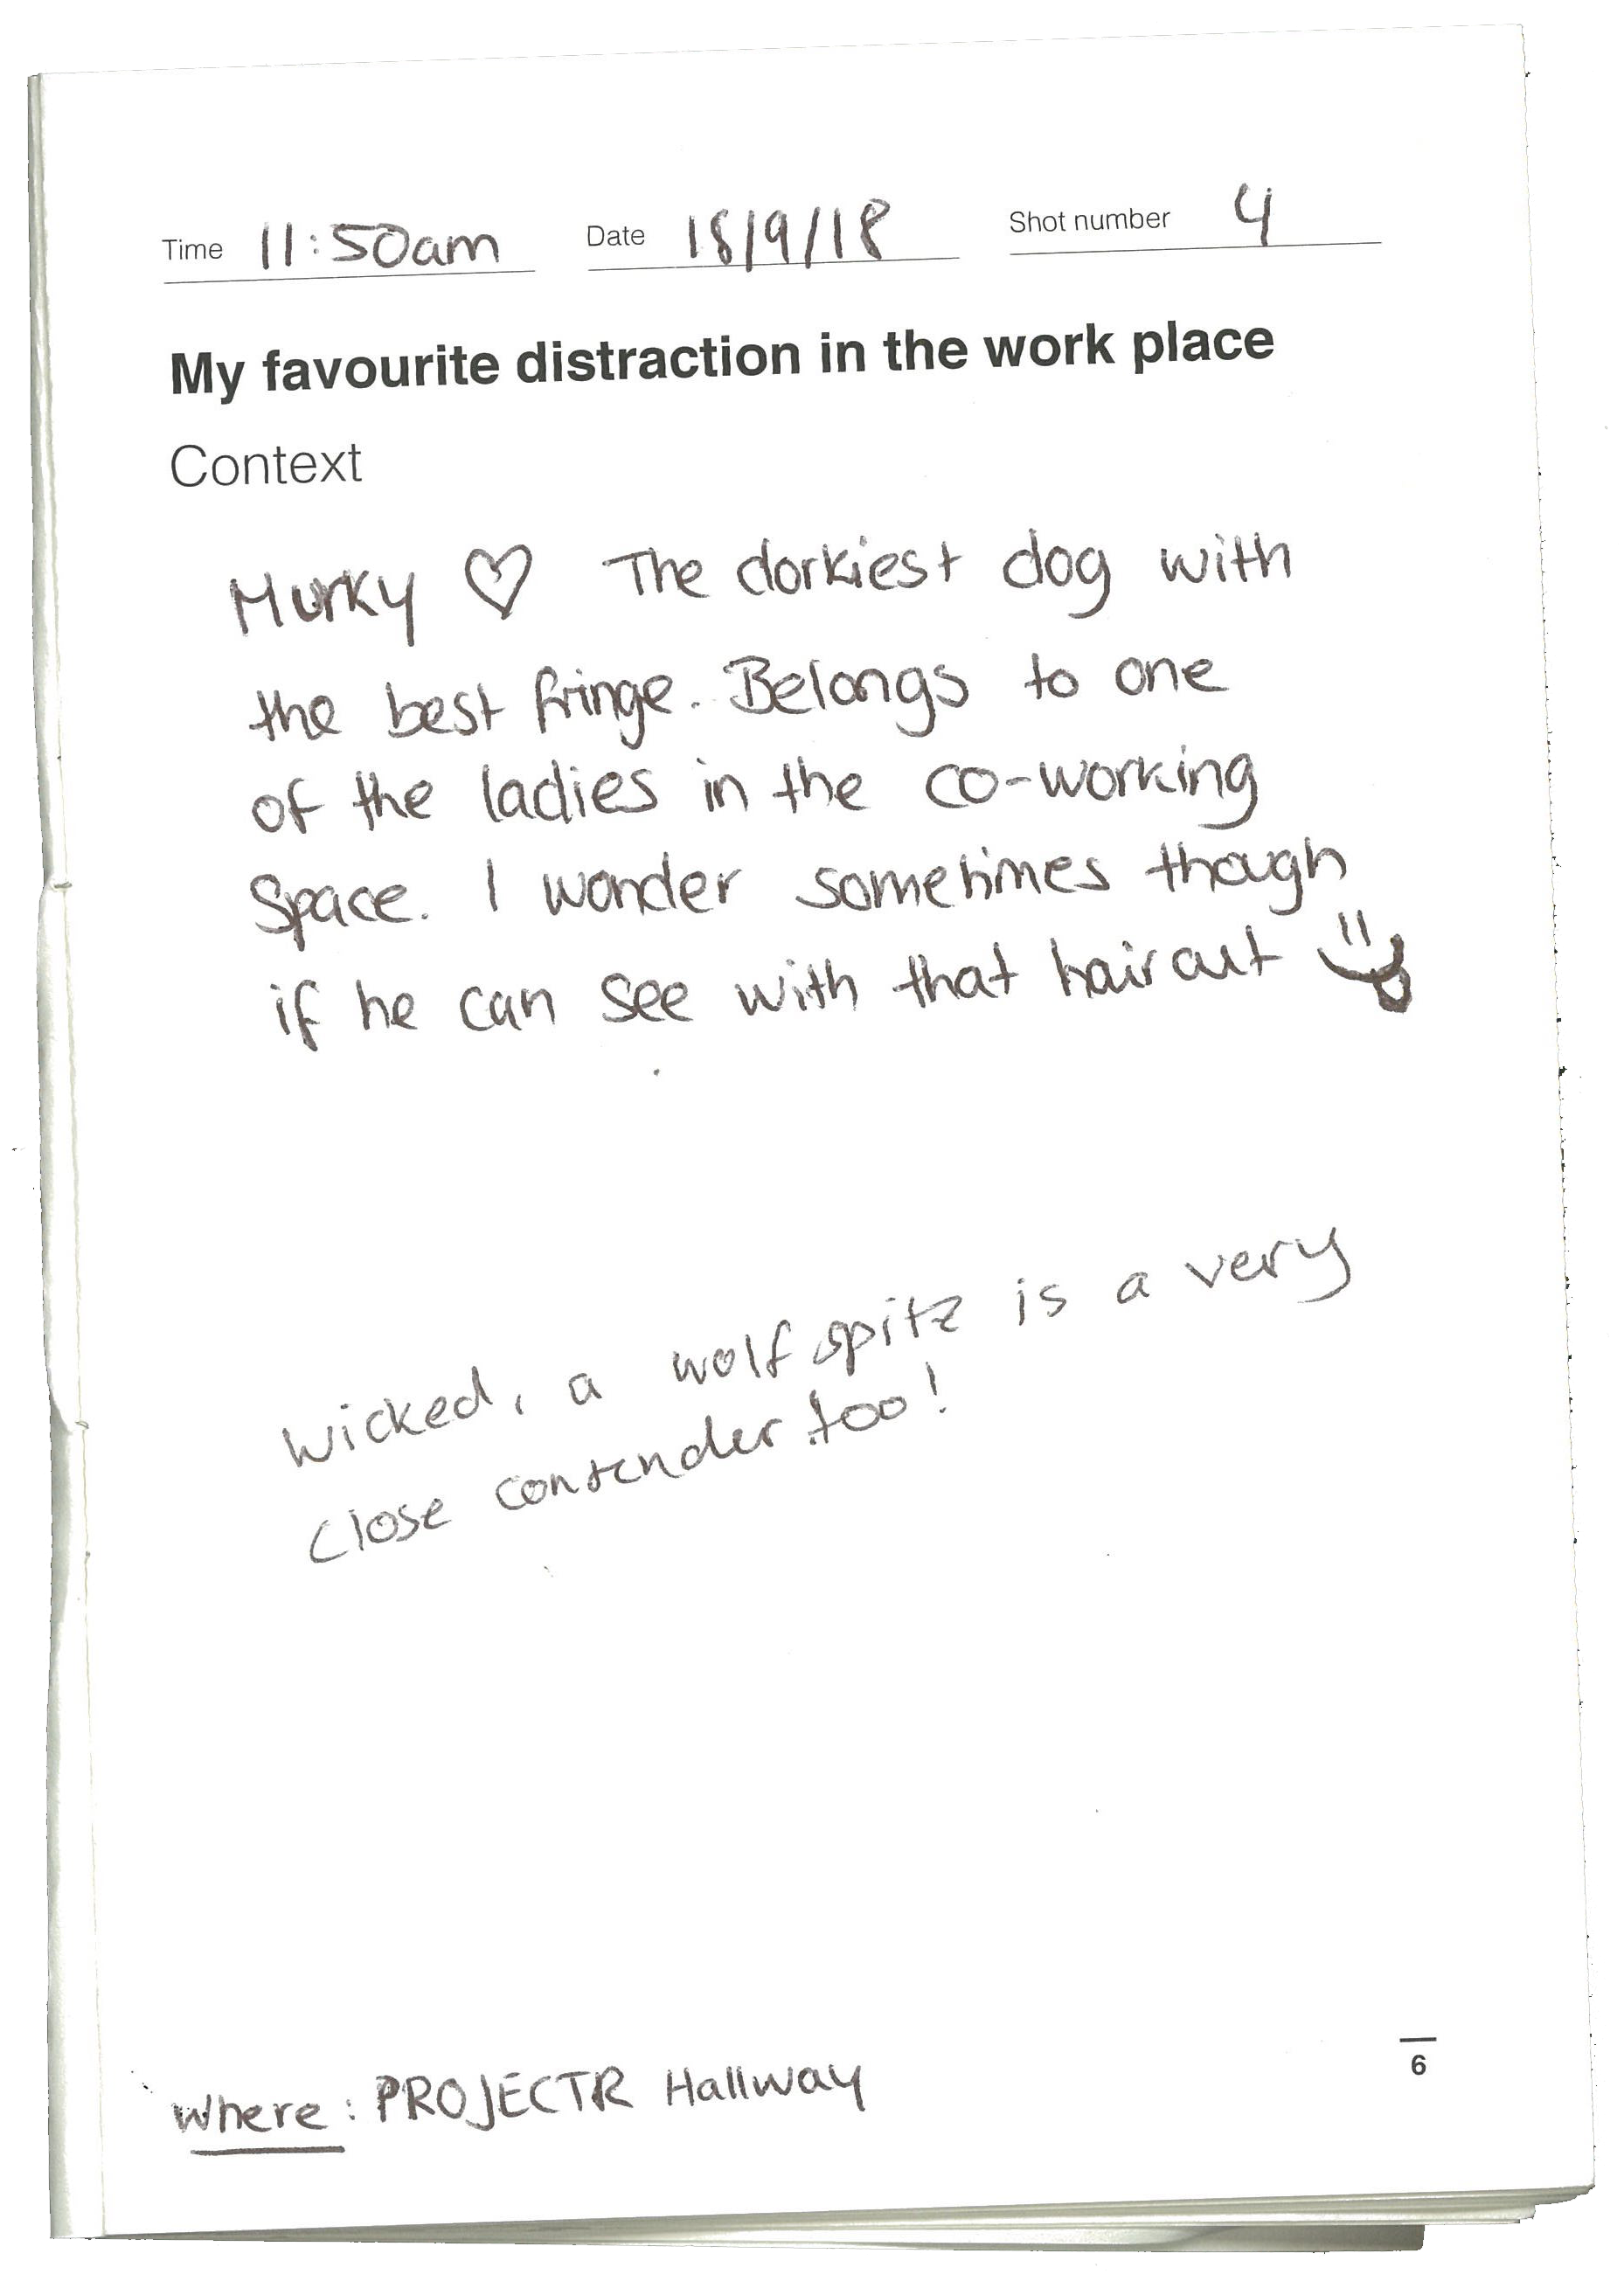 Time 11:50am Date 18/9/18 Shot number 4
My favourite distraction in the work place
Context
Murky ♡ The dorkiest dog with
the best fringe. Belongs to one
of the ladies in the co-working
Space. I wonder sometimes though
if he can see with that haircut
Wicked, a wolf spitz is a very
close contender too!
6
Where: PROJECTR Hallway